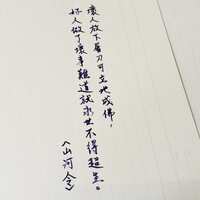 壞人放下屠刀可立地成佛，
好人做了壞事難道就永世不得超生。
《山河令》